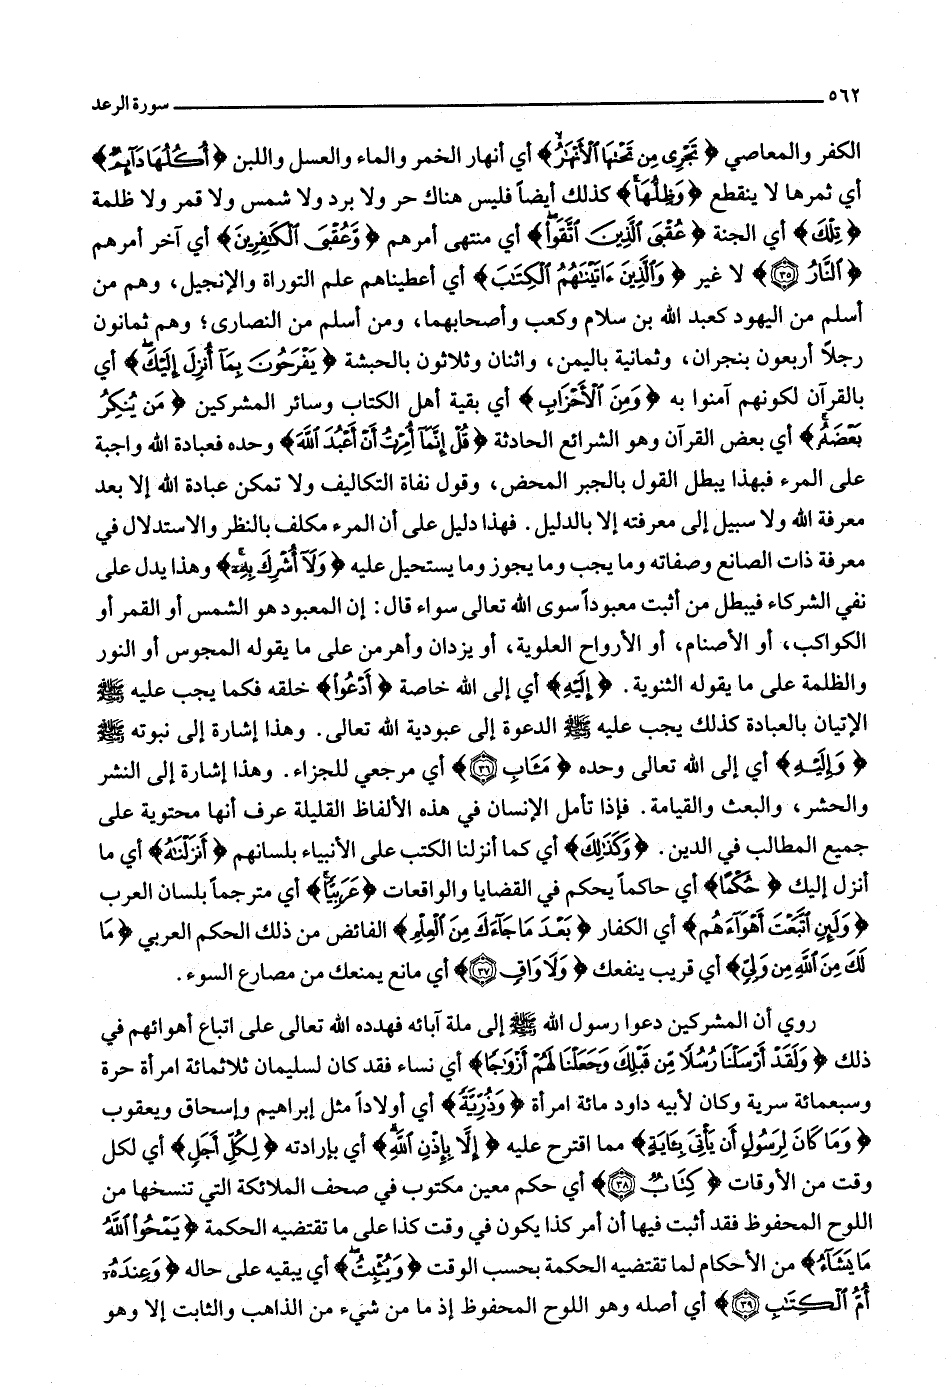 ٥٦٢ سورة الرعد
الكفر والمعاصي ﴿تَجْرِي مِن تَحْتِهَا ٱلْأَنْهَٰرُ﴾ أي أنهار الخمر والماء والعسل واللبن ﴿أُكُلُهَا دَآئِمٌ﴾
أي ثمرها لا ينقطع ﴿وَظِلُّهَا﴾ كذلك أيضاً فليس هناك حر ولا برد ولا شمس ولا قمر ولا ظلمة
﴿تِلْكَ﴾ أي الجنة ﴿عُقْبَى ٱلَّذِينَ ٱتَّقَواْ﴾ أي منتهى أمرهم ﴿وَّعُقْبَى ٱلْكَٰفِرِينَ﴾ أي آخر أمرهم
﴿ٱلنَّارُ ٣٥﴾ لا غير ﴿وَٱلَّذِينَ ءَاتَيْنَٰهُمُ ٱلْكِتَٰبَ﴾ أي أعطيناهم علم التوراة والإنجيل، وهم من
أسلم من اليهود كعبد الله بن سلام وكعب وأصحابهما، ومن أسلم من النصارى؛ وهم ثمانون
رجلاً أربعون بنجران، وثمانية باليمن، واثنان وثلاثون بالحبشة ﴿يَفْرَحُونَ بِمَآ أُنزِلَ إِلَيْكَ﴾ أي
بالقرآن لكونهم آمنوا به ﴿وَمِنَ ٱلْأَحْزَابِ﴾ أي بقية أهل الكتاب وسائر المشركين ﴿مَن يُنكِرُ
بَعْضَهُۥ﴾ أي بعض القرآن وهو الشرائع الحادثة ﴿قُلْ إِنَّمَآ أُمِرْتُ أَنْ أَعْبُدَ ٱللَّهَ﴾ وحده فعبادة الله واجبة
على المرء فبهذا يبطل القول بالجبر المحض، وقول نفاة التكاليف ولا تمكن عبادة الله إلا بعد
معرفة الله ولا سبيل إلى معرفته إلا بالدليل. فهذا دليل على أن المرء مكلف بالنظر والاستدلال في
معرفة ذات الصانع وصفاته وما يجب وما يجوز وما يستحيل عليه ﴿وَلَآ أُشْرِكَ بِهِۦٓ﴾ وهذا يدل على
نفي الشركاء فيبطل من أثبت معبوداً سوى الله تعالى سواء قال: إن المعبود هو الشمس أو القمر أو
الكواكب، أو الأصنام، أو الأرواح العلوية، أو يزدان وأهرمن على ما يقوله المجوس أو النور
والظلمة على ما يقوله الثنوية. ﴿إِلَيْهِ﴾ أي إلى الله خاصة ﴿أَدْعُواْ﴾ خلقه فكما يجب عليه ﷺ
الإتيان بالعبادة كذلك يجب عليه ﷺ الدعوة إلى عبودية الله تعالى. وهذا إشارة إلى نبوته ﷺ
﴿وَإِلَيْهِ﴾ أي إلى الله تعالى وحده ﴿مَـَٔابِ ٣٦﴾ أي مرجعي للجزاء. وهذا إشارة إلى النشر
والحشر، والبعث والقيامة. فإذا تأمل الإنسان في هذه الألفاظ القليلة عرف أنها محتوية على
جميع المطالب في الدين. ﴿وَكَذَٰلِكَ﴾ أي كما أنزلنا الكتب على الأنبياء بلسانهم ﴿أَنزَلْنَٰهُ﴾ أي ما
أنزل إليك ﴿حُكْمًا﴾ أي حاكماً يحكم في القضايا والواقعات ﴿عَرَبِيًّا﴾ أي مترجماً بلسان العرب
﴿وَلَئِنِ ٱتَّبَعْتَ أَهْوَآءَهُم﴾ أي الكفار ﴿بَعْدَ مَا جَآءَكَ مِنَ ٱلْعِلْمِ﴾ الفائض من ذلك الحكم العربي ﴿مَا
لَكَ مِنَ ٱللَّهِ مِن وَلِيٍّ﴾ أي قريب ينفعك ﴿وَلَا وَاقٍ ٣٧﴾ أي مانع يمنعك من مصارع السوء.
روي أن المشركين دعوا رسول الله ﷺ إلى ملة آبائه فهدده الله تعالى على اتباع أهوائهم في
ذلك ﴿وَلَقَدْ أَرْسَلْنَا رُسُلًا مِّن قَبْلِكَ وَجَعَلْنَا لَهُمْ أَزْوَٰجًا﴾ أي نساء فقد كان لسليمان ثلاثمائة امرأة حرة
وسبعمائة سرية وكان لأبيه داود مائة امرأة ﴿وَذُرِّيَّةً﴾ أي أولاداً مثل إبراهيم وإسحاق ويعقوب
﴿وَمَا كَانَ لِرَسُولٍ أَن يَأْتِىَ بِـَٔايَةٍ﴾ مما اقترح عليه ﴿إِلَّا بِإِذْنِ ٱللَّهِ﴾ أي بإرادته ﴿لِكُلِّ أَجَلٍ﴾ أي لكل
وقت من الأوقات ﴿كِتَابٌ ٣٨﴾ أي حكم معين مكتوب في صحف الملائكة التي تنسخها من
اللوح المحفوظ فقد أثبت فيها أن أمر كذا يكون في وقت كذا على ما تقتضيه الحكمة ﴿يَمْحُواْ ٱللَّهُ
مَا يَشَآءُ﴾ من الأحكام لما تقتضيه الحكمة بحسب الوقت ﴿وَيُثْبِتُ﴾ أي يبقيه على حاله ﴿وَعِندَهُۥٓ
أُمُّ ٱلْكِتَٰبِ ٣٩﴾ أي أصله وهو اللوح المحفوظ إذ ما من شيء من الذاهب والثابت إلا وهو